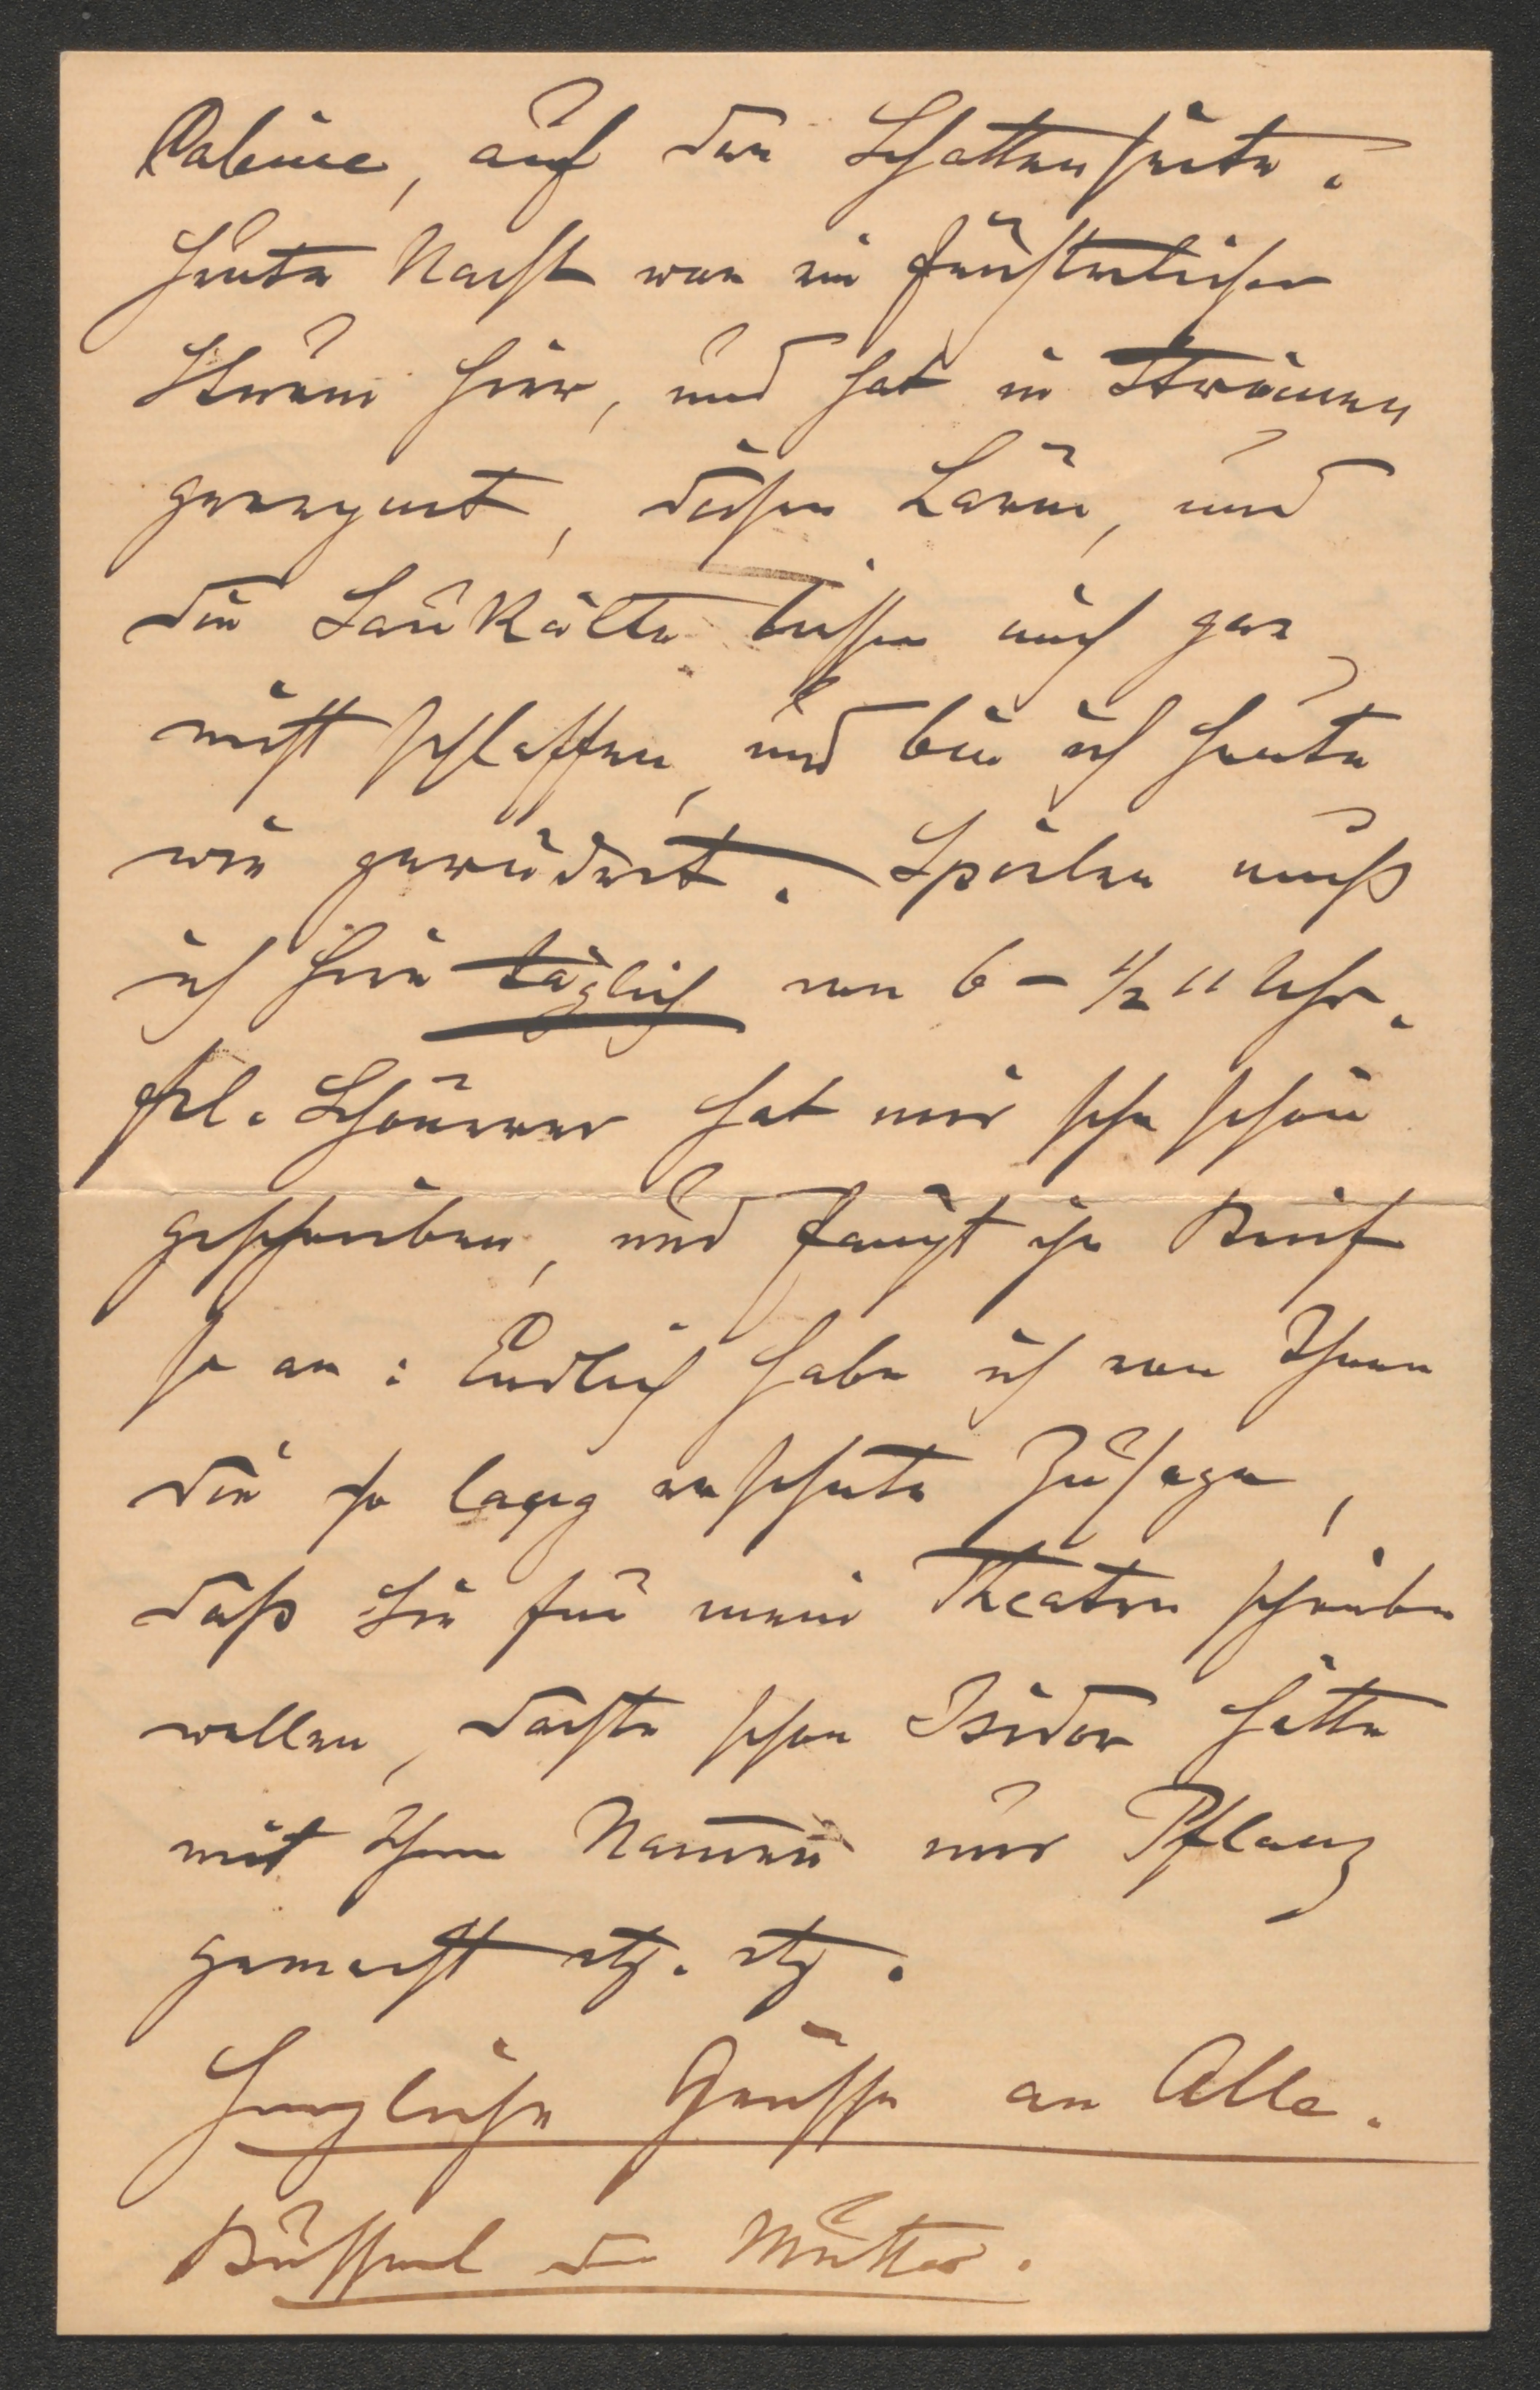 Cabine, auf der Schattenseite.
Heute Nacht war ein fürchterlicher
Sturm hier, und hat in Strömen
geregnet, dieser Lärm, und
die Saukälte ließen mich gar
nicht schlaffen, und bin ich heute
wie gerädert. Spielen muß
ich hier täglich von 6 – ½ 11 Uhr.
Frl. Schönerer hat mir sehr schön
geschrieben, und fängt ihr Brief
so an: Endlich habe ich von Ihnen
die so lang ersehnte Zusage,
daß Sie für mein Theater schreiben
wollen, dachte schon Isidor hätte
mit Ihrem Namen nur Pflanz
gemacht etz. etz.
Herzliche Grüsse an Alle.
Busserl der Mutter.